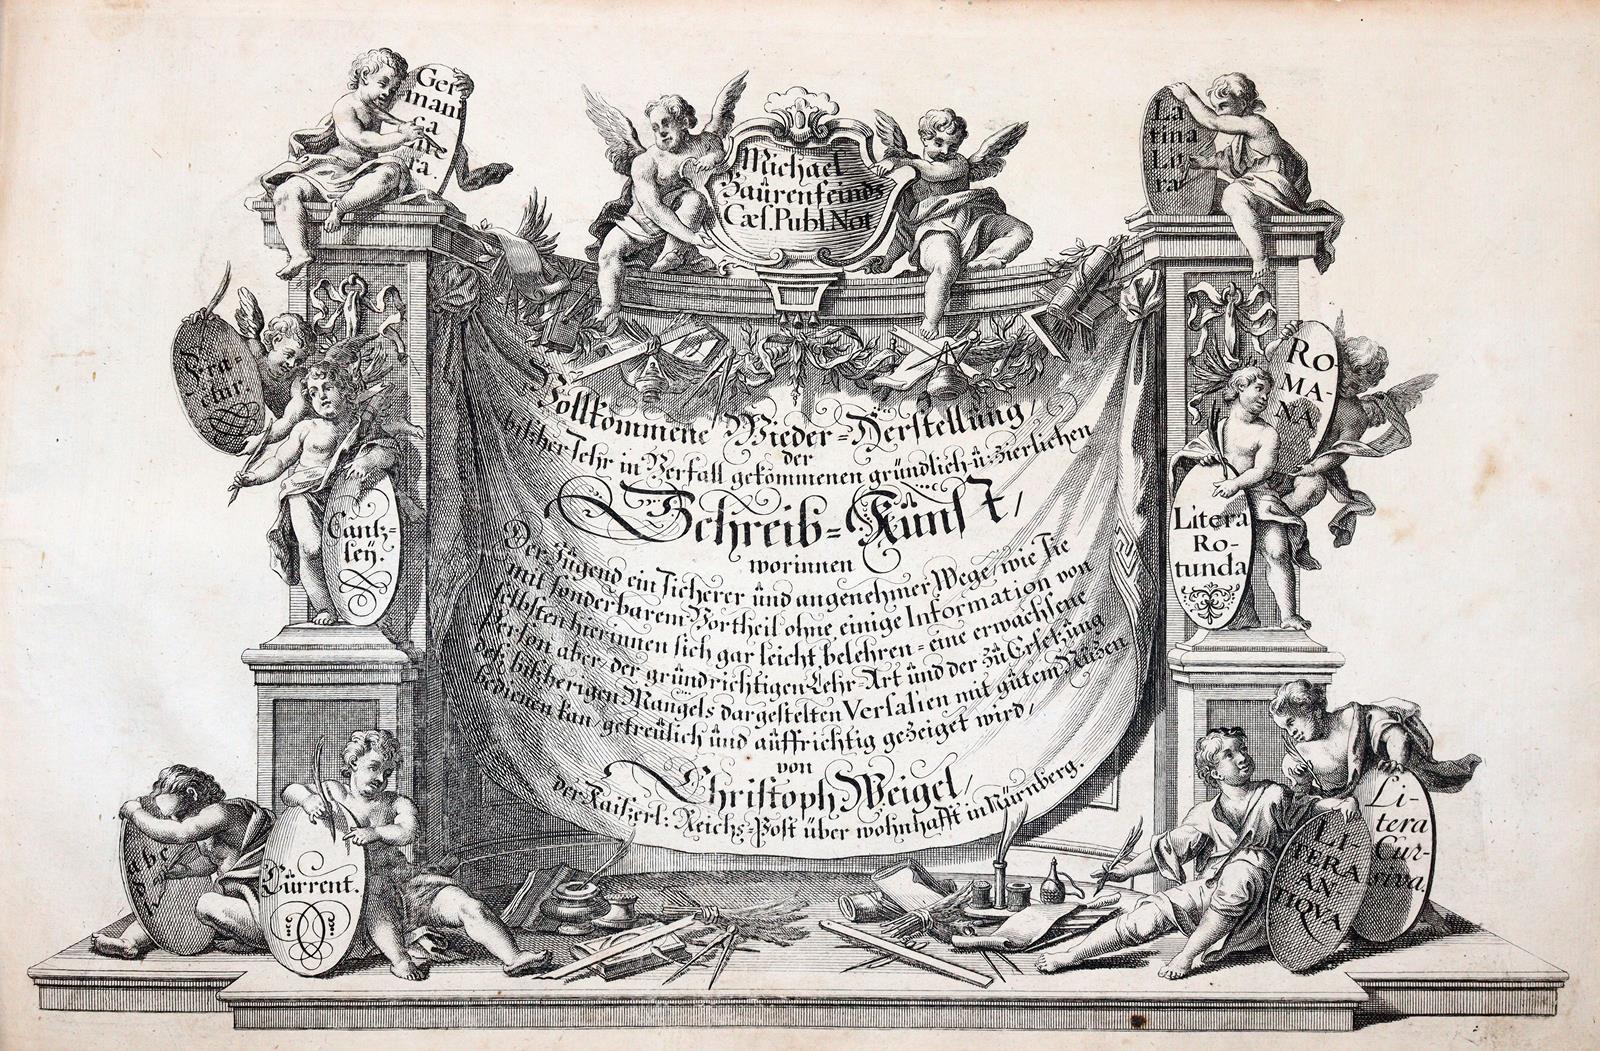 Ger
mani
ca
Lite
ra.
Michael
Baürenfeinds
Cæs. Publ. Not
La
tina
Lit
ra
Fra-
ctur.
Cantz-
leÿ.
RO-
MA-
NA
Litera
Ro-
tunda
Vollkommene Wieder=Herstellung/
der
bißher sehr in Verfall gekommenen gründlich-ü: zierlichen
Schreib=Künst/
worinnen
Der Jügend ein sicherer ünd angenehmer Wege/ wie sie
mit sonderbarem Vortheil ohne einige Information von
selbsten hierinnen sich gar leicht belehren = eine erwachsene
Person aber der gründrichtigen Lehr-Art ünd der zü Ersetzüng
deß bißherigen Mangels dargestelten Versalien mit gütem Nützen
bedienen kan getreülich ünd aüffrichtig gezeiget wird/
von
Christoph Weigel/
der Kaißerl: Reichs-Post über wohnhafft in Nürnberg.
Cürrent.
LI-
TERA
AN
TIQVA
Li-
tera
Cur-
siva.